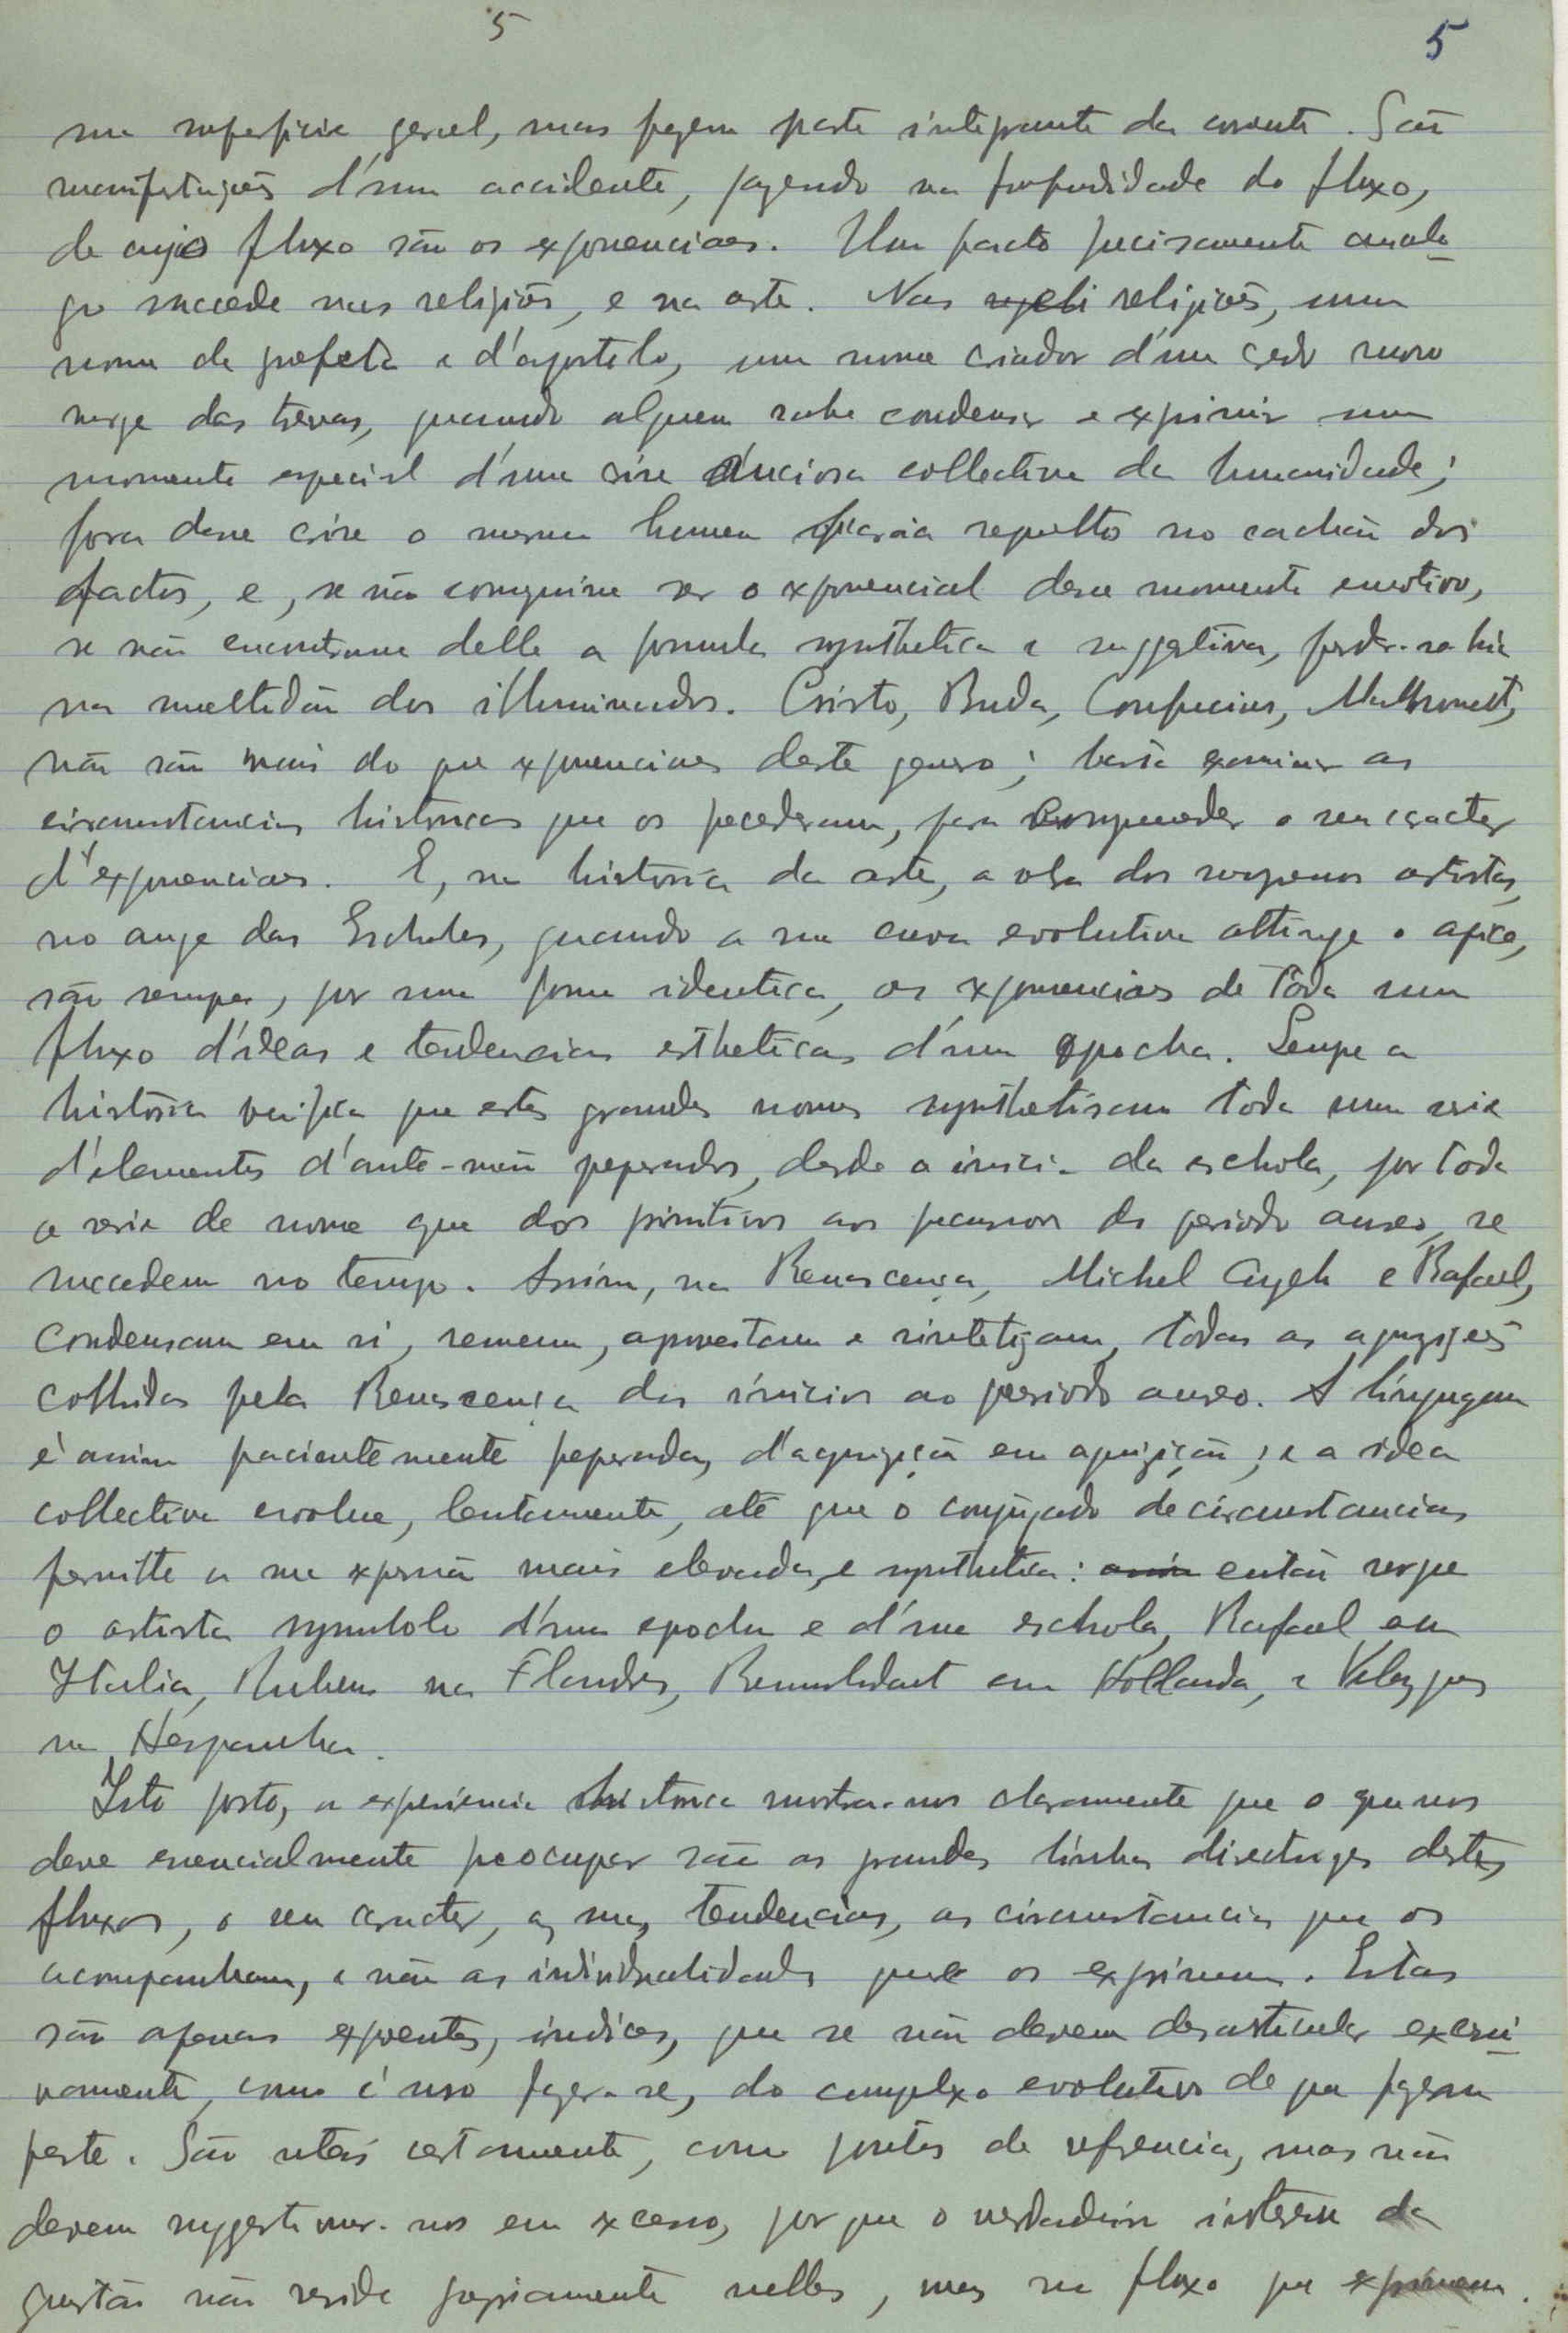 5 5
na superficie geral, mas fazem parte integrante da corrente. São
manifestações d'um accidente, jazendo na profundidade do fluxo,
de cujo fluxo são os exponenciaes. Um facto precisamente analo-
go succede nas religiões, e na arte. Nas religiões, um
nome de profeta e d'apostolo, um nome criador d'um credo novo
surge das trevas, quando alguem sabe condensar e exprimir um
momento especial d'uma crise anciosa collectiva da humanidade;
fora desse crise o mesmo homem ficaria sepulto no cachão dos
factos, e, se não conseguisse ser o exponencial desse momento emotivo,
se não encontrasse delle a formula synthetica e suggestiva, perder-se hia
na multidão dos illuminados. Cristo, Buda, Confucius, Mathomet,
não são mais do que exponenciaes deste genero; basta examinar as
circumstancias historicas que os precederam, para comprender o seu caracter
d'exponenciaes. E, na historia da arte, a obra dos supremos artistas,
no auge das Escholas, quando a sua curva evolutiva attinge o apice,
são sempre, por uma forma identica, os exponenciaes de tôda um
fluxo d'ideas e tendencias estheticas d'uma epocha. Sempre a
história verifica que estes grandes nomes synthetisam toda uma serie
d'elementos d'ante-mão preparados, desde o inicio da eschola, por toda
a serie de nome que dos primitivos aos precursores do periodo aureo, se
succedem no tempo. Assim, na Renascença, Michel Angelo e Rafael,
condensam em si, resumem, aproveitam e sintetizam, todas as aquizições
colhidas pela Renascença dos inicios ao periodo aureo. A linguagem
é assim pacientemente preparada, d'aquizição em aquizição; e a idea
collectiva evolue, lentamente, até que o conjugado de circumstancias
permitte a sua expressão mais elevada, e synthetica: então surge
o artista symbolo d'uma epocha e d'uma eschola, Rafael em
Italia, Rubens na Flandres, Rembrandt em Hollanda, e Velazques
na Hespanha.
Isto posto, a experiencia historica mostra-nos claramente que o que nos
deve essencialmente preocupar são as grandes linhas directrizes destes
fluxos, o seu caracter, as suas tendencias, as circumstancias que os
acompanham, e não as individualidades que os exprimem. Estas
são apenas expoentes, indices, que se não devem desarticular excessi-
vamente, como é uso fazer-se, do complexo evolutivo de que fazem
parte. São uteis certamente, como pontos de referencia, mas não
devem suggestionar-nos em excesso, por que o verdadeiro interesse da
questão não reside propriamente nelles, mas no fluxo que exprimem.